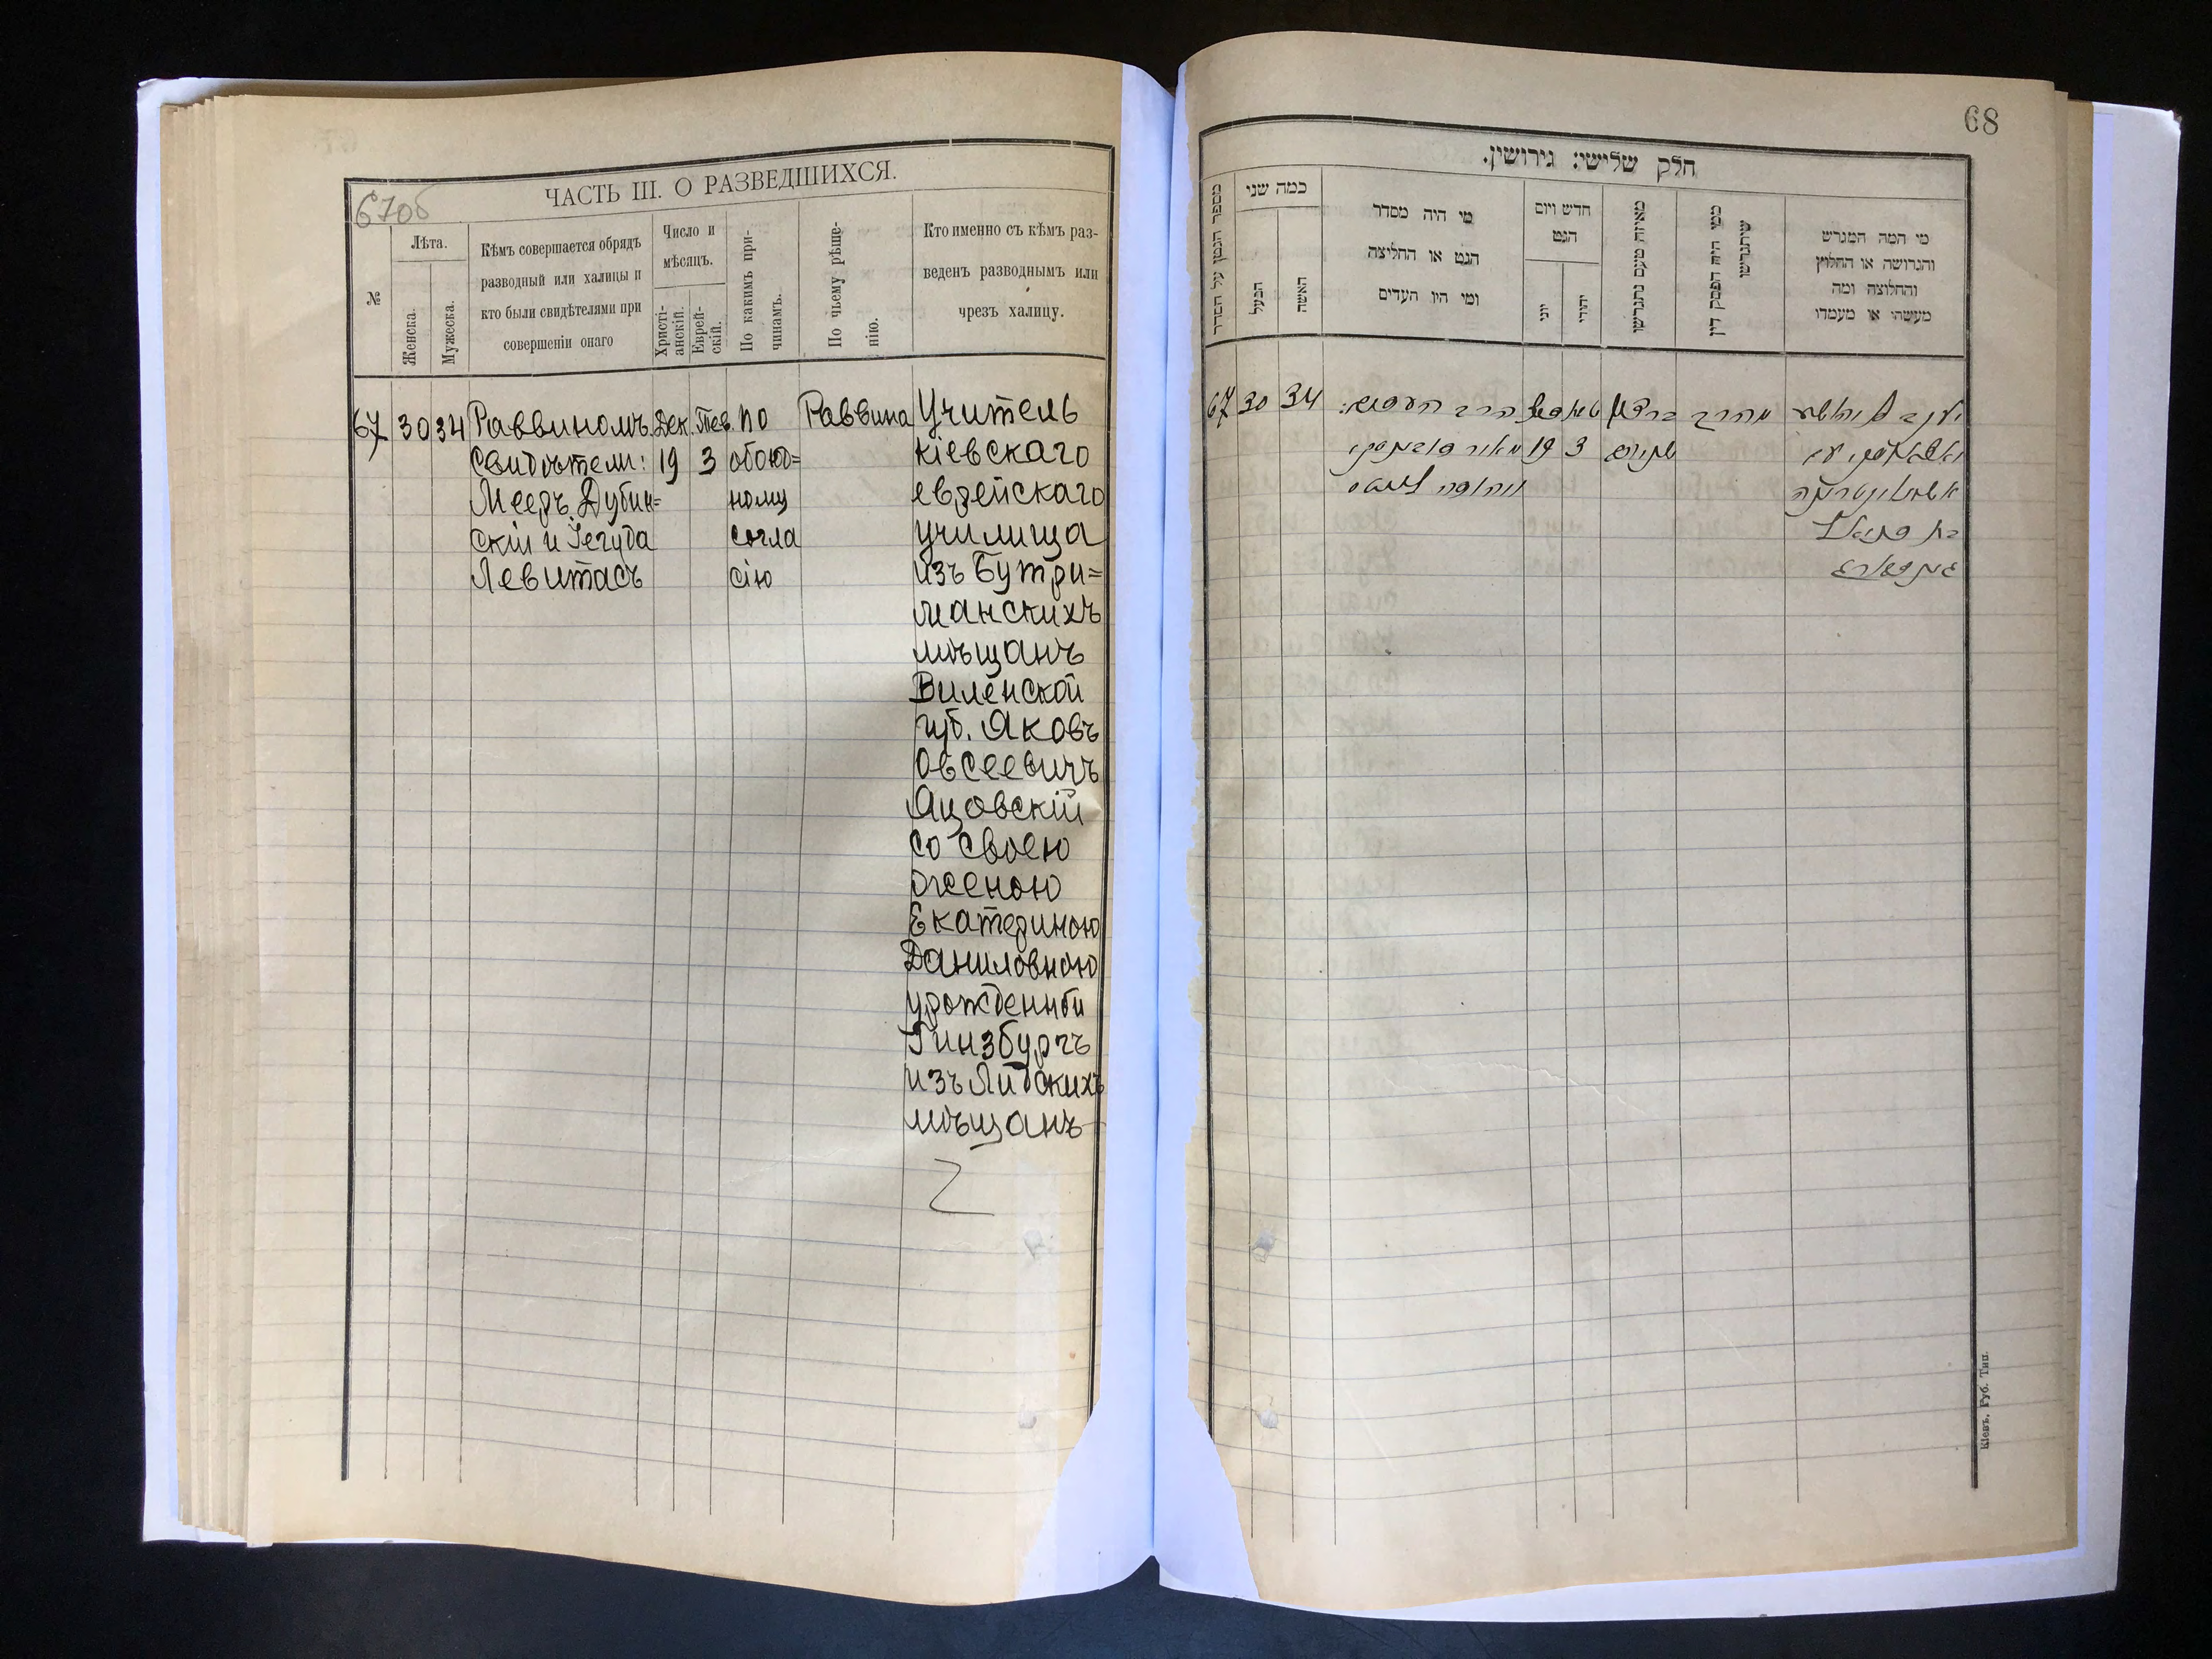 67об
ЧАСТЬ III. О РАЗВЕДШИХСЯ.
№
Лѣта.
Женска.
Мужеска.
Кѣмъ совершается обрядъ
разводный или халицы и
кто были свидѣтелями при
совершеніи онаго
Число и
мѣсяцъ.
Христі-
анскій.
Еврей-
скій.
По какимъ при-
чинамъ.
По чьему рѣше-
нію.
Кто именно съ кѣмъ раз-
веденъ разводнымъ или
чрезъ халицу.
67 30 34 Раввиномъ. Дек. Тев. по Раввина Учитель
свидѣтели: 19 3 обоюд= кіевскаго
Мееръ Дубин= ному еврейскаго
скій и Іегуда согла училища
Левитасъ сію изъ Бутри=
манскихъ
мѣщанъ
Виленской
губ. Яковъ
Овсеевичъ
Яцовскій
со своею
женою
Екатериною
Даниловною
урожденной
Гинзбургъ
изъ Лидскихъ
мѣщанъ
68
חלק שלישי: גירושין.
מספר הגטין על הסדר
כמה שני
הבעל
האשה
מי היה מסדר
הגט או החליצה
ומי היו העדים
חדש ויום
הגט
יוני
יהודי
מאיזה טעם נתגרשו
ממי היה הפסק דין
שיתגרשו
מי המה המגרש
והגרושה או החלוץ
והחלוצה ומה
מעשהו או מעמדו
67 30 34
19 3
Кіевъ, Губ. Тип.